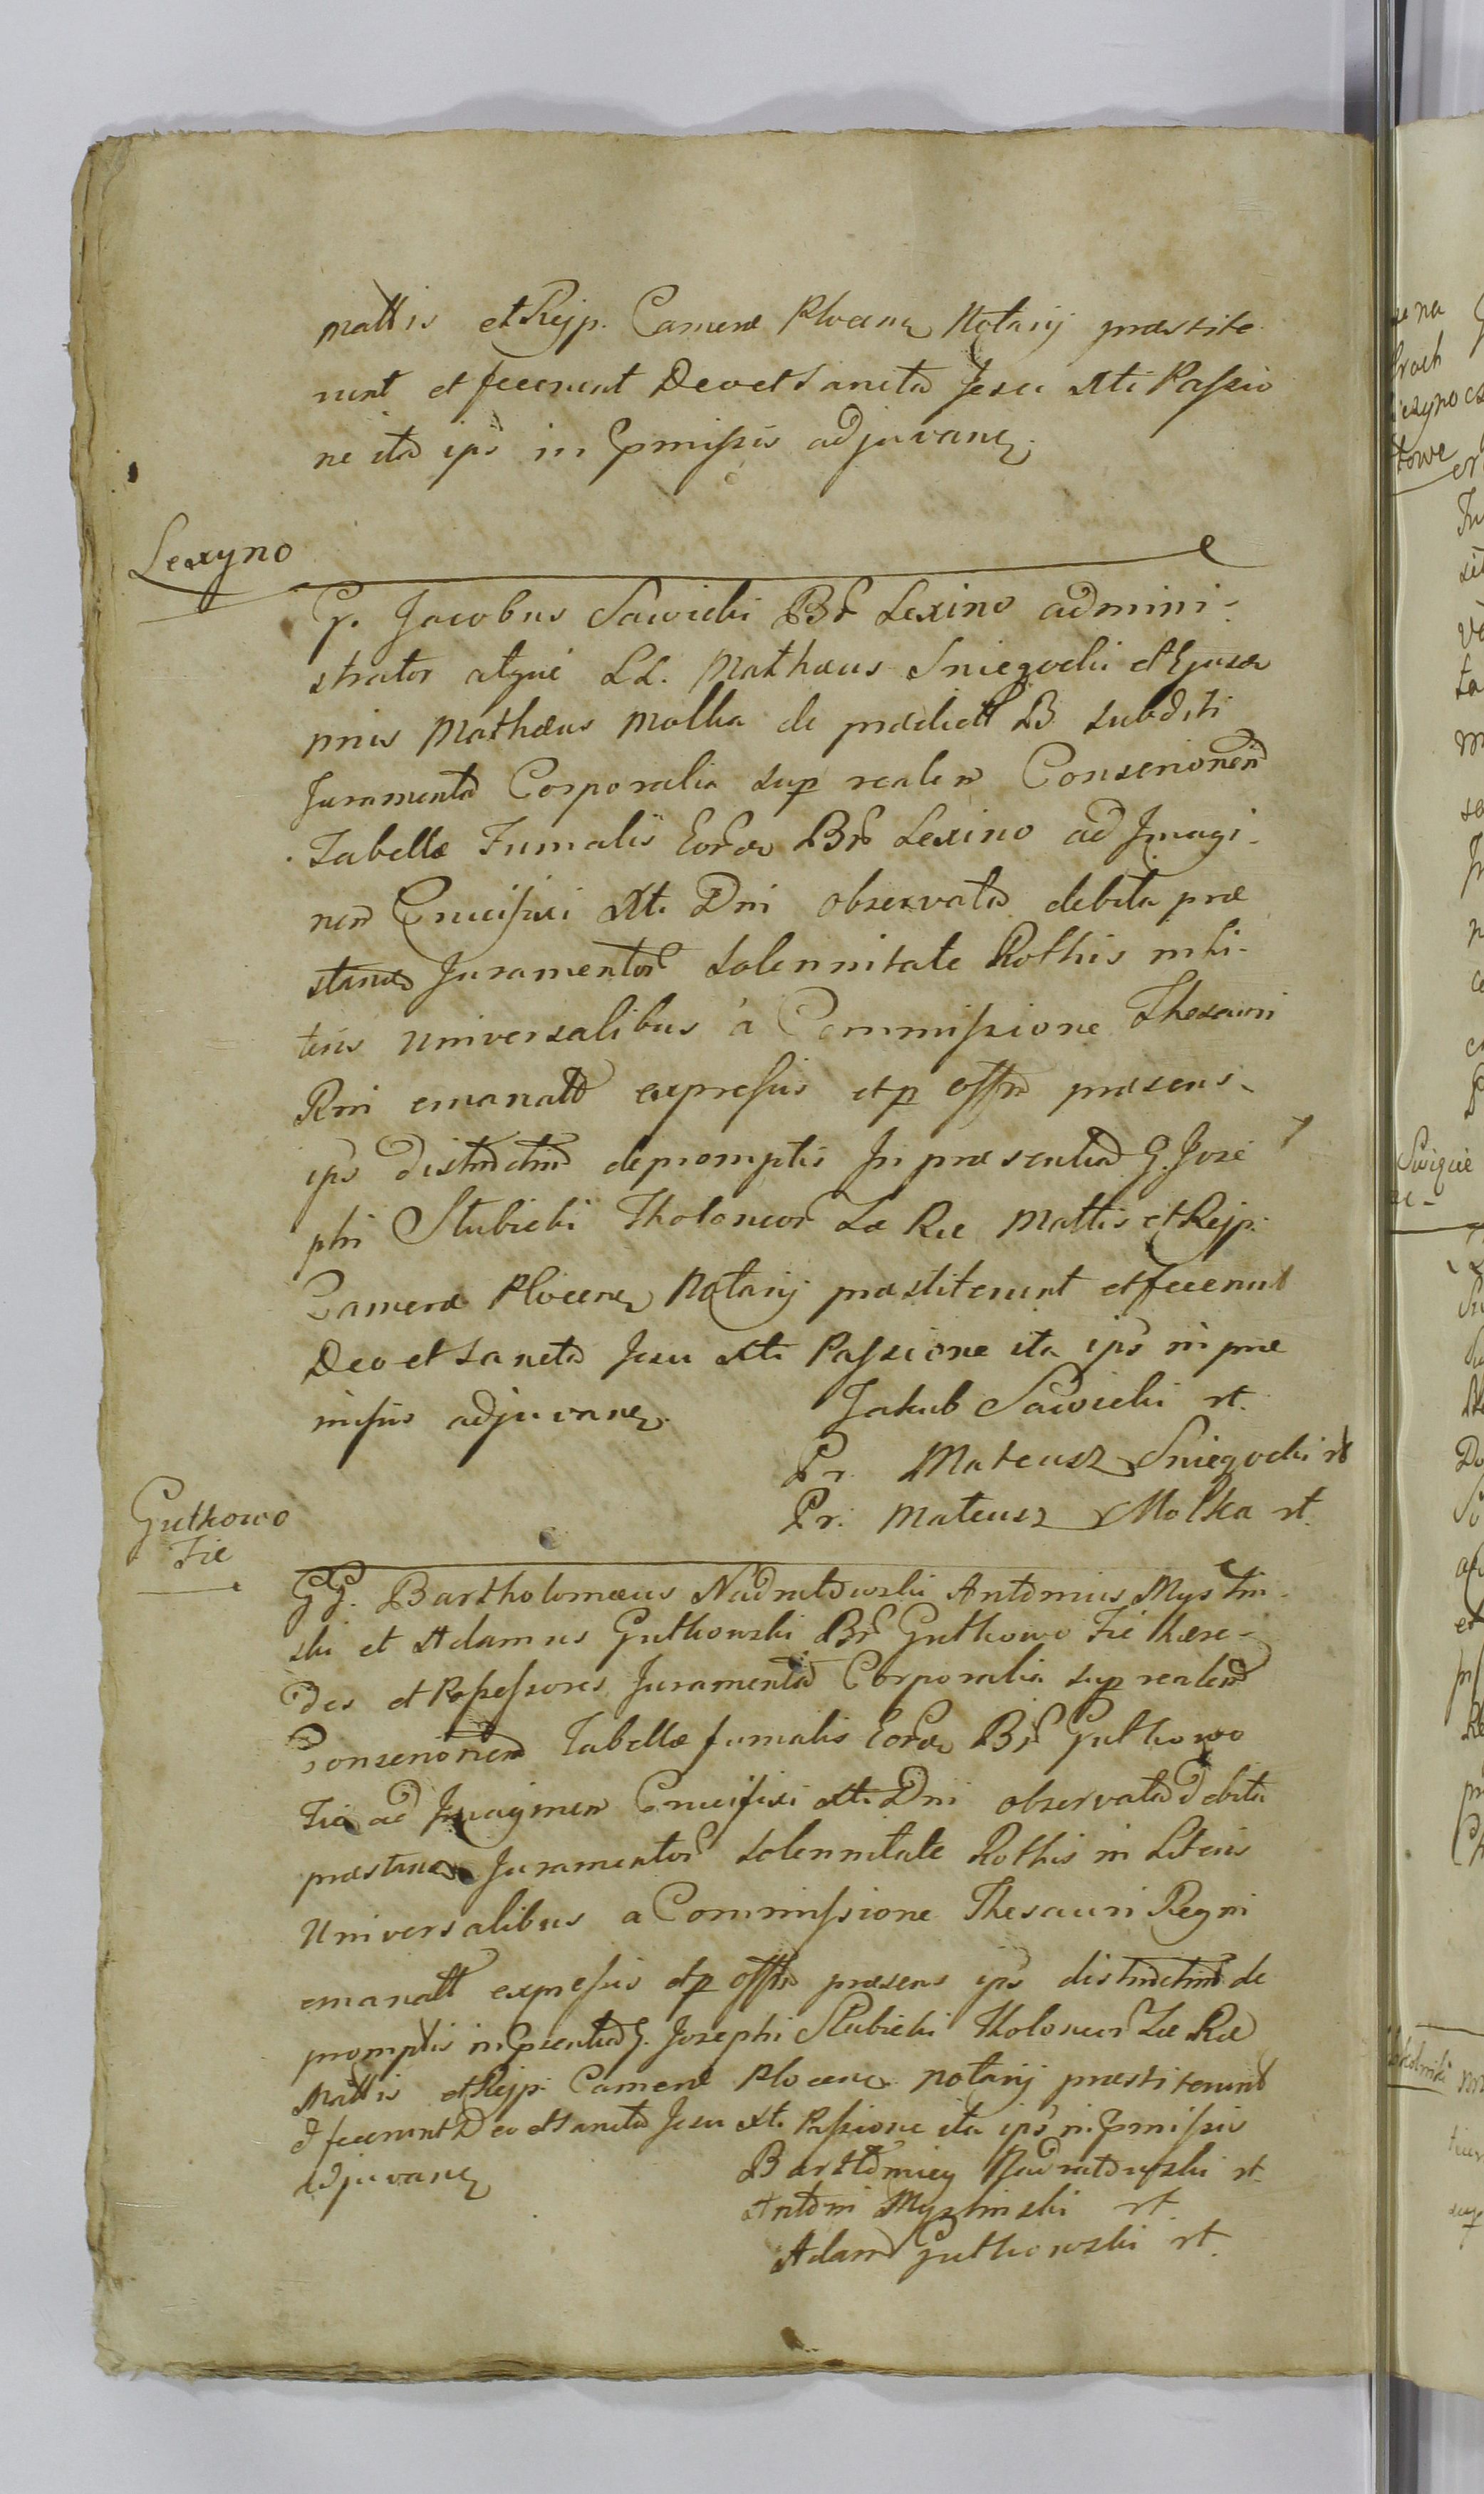 mattis et Reip. Camerae Plocens Notarij praestite
runt et fecerunt Deo et Sancta Jesu Xti Passio
ne ita ips in Pmissis adjuvans
Lexyno
G. Jacobus Sawicki Br Lexino admini-
strator atque LL. Mathaeus Sniegocki et Ejusd
pnis Mathaeus Molka de praedictt B subditi
Juramenta Corporalia sup realem Conscrionem
Tabellae Fumalis Eord Br Lexino ad Imagi-
nem Crucifixi Xti Dni observata debita prae
stand Juramentor solennitate Rothis in li-
teris universalibus a Commissione Thesauri
Rni emanatt expressis et p offm praesens
ips distinctim depromptis In praesentia G. Jose
phi Slubicki Tholoneor Lae Rae Mattis et Reip.
Camerae Plocens Notarij praestiterunt et fecerunt
Deo et Sancta Jesu Xti Passione ita ips in prae
missis adjuvans
Jakub Sawicki rt.
Pr. Mateusz Sniegocki rt
Pr. Mateusz Molka rt.
Gutkowo
Fie
GG. Bartholomaeus Nadratowski Antonius Mystin-
ski et Adamus Gutkowski Br Gutkowo Fie Haere-
des et Possessores Juramenta Corporalia sup realem
Conscrionem Tabellae fumalis Eord Br Gutkowo
Fie ad Imaginem Crucifixi Xti Dni observata debita
praestand Juramentor solennitate Rothis in Literis
Universalibus a Commissione Thesauri Regni
emanatt expressis et p offm praesens ips distinctim de
promptis in Psentia G. Josephi Slubicki Tholoneor Lae Rae
Mattis et Reip. Camerae Plocens notarij praestiterunt
et fecerunt Deo et Sancta Jesu Xti Passione ita ips in Pmissis
adjuvans
Bartlomiey Nadratowski rt.
Antoni Mystinski rt.
Adam Gutkowski rt.